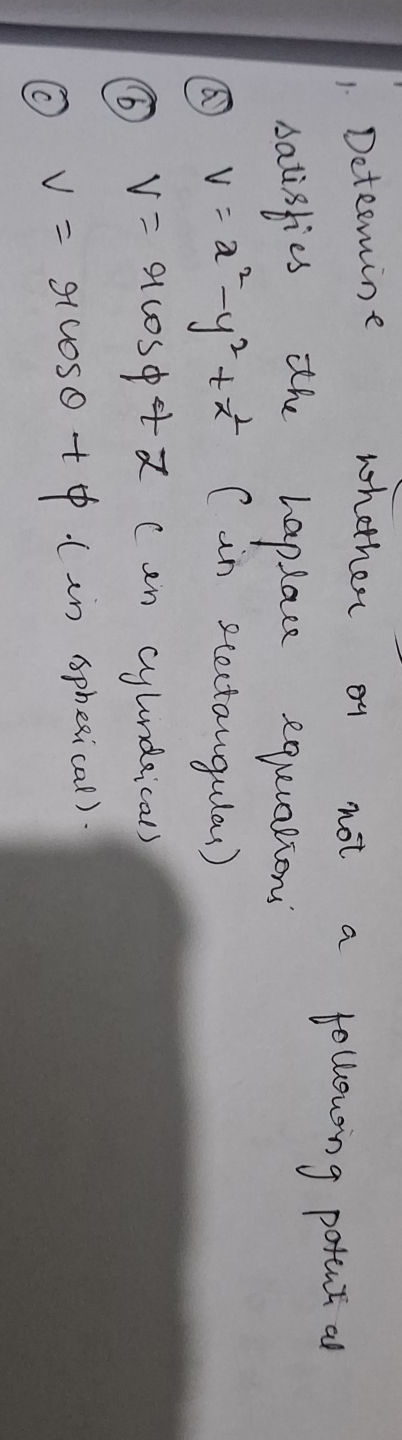 1. Determine whether or not a following potential
satisfies the Laplace equations
(a) V = x² - y² + z² (in rectangular)
(b) V = r cos φ + z (in cylindrical)
(c) V = r cos θ + φ. (in spherical).